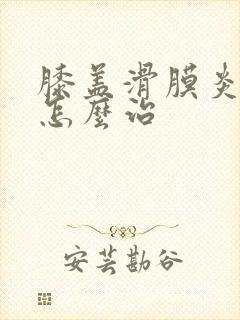 膝盖滑膜炎
怎麼治
安芸勘谷